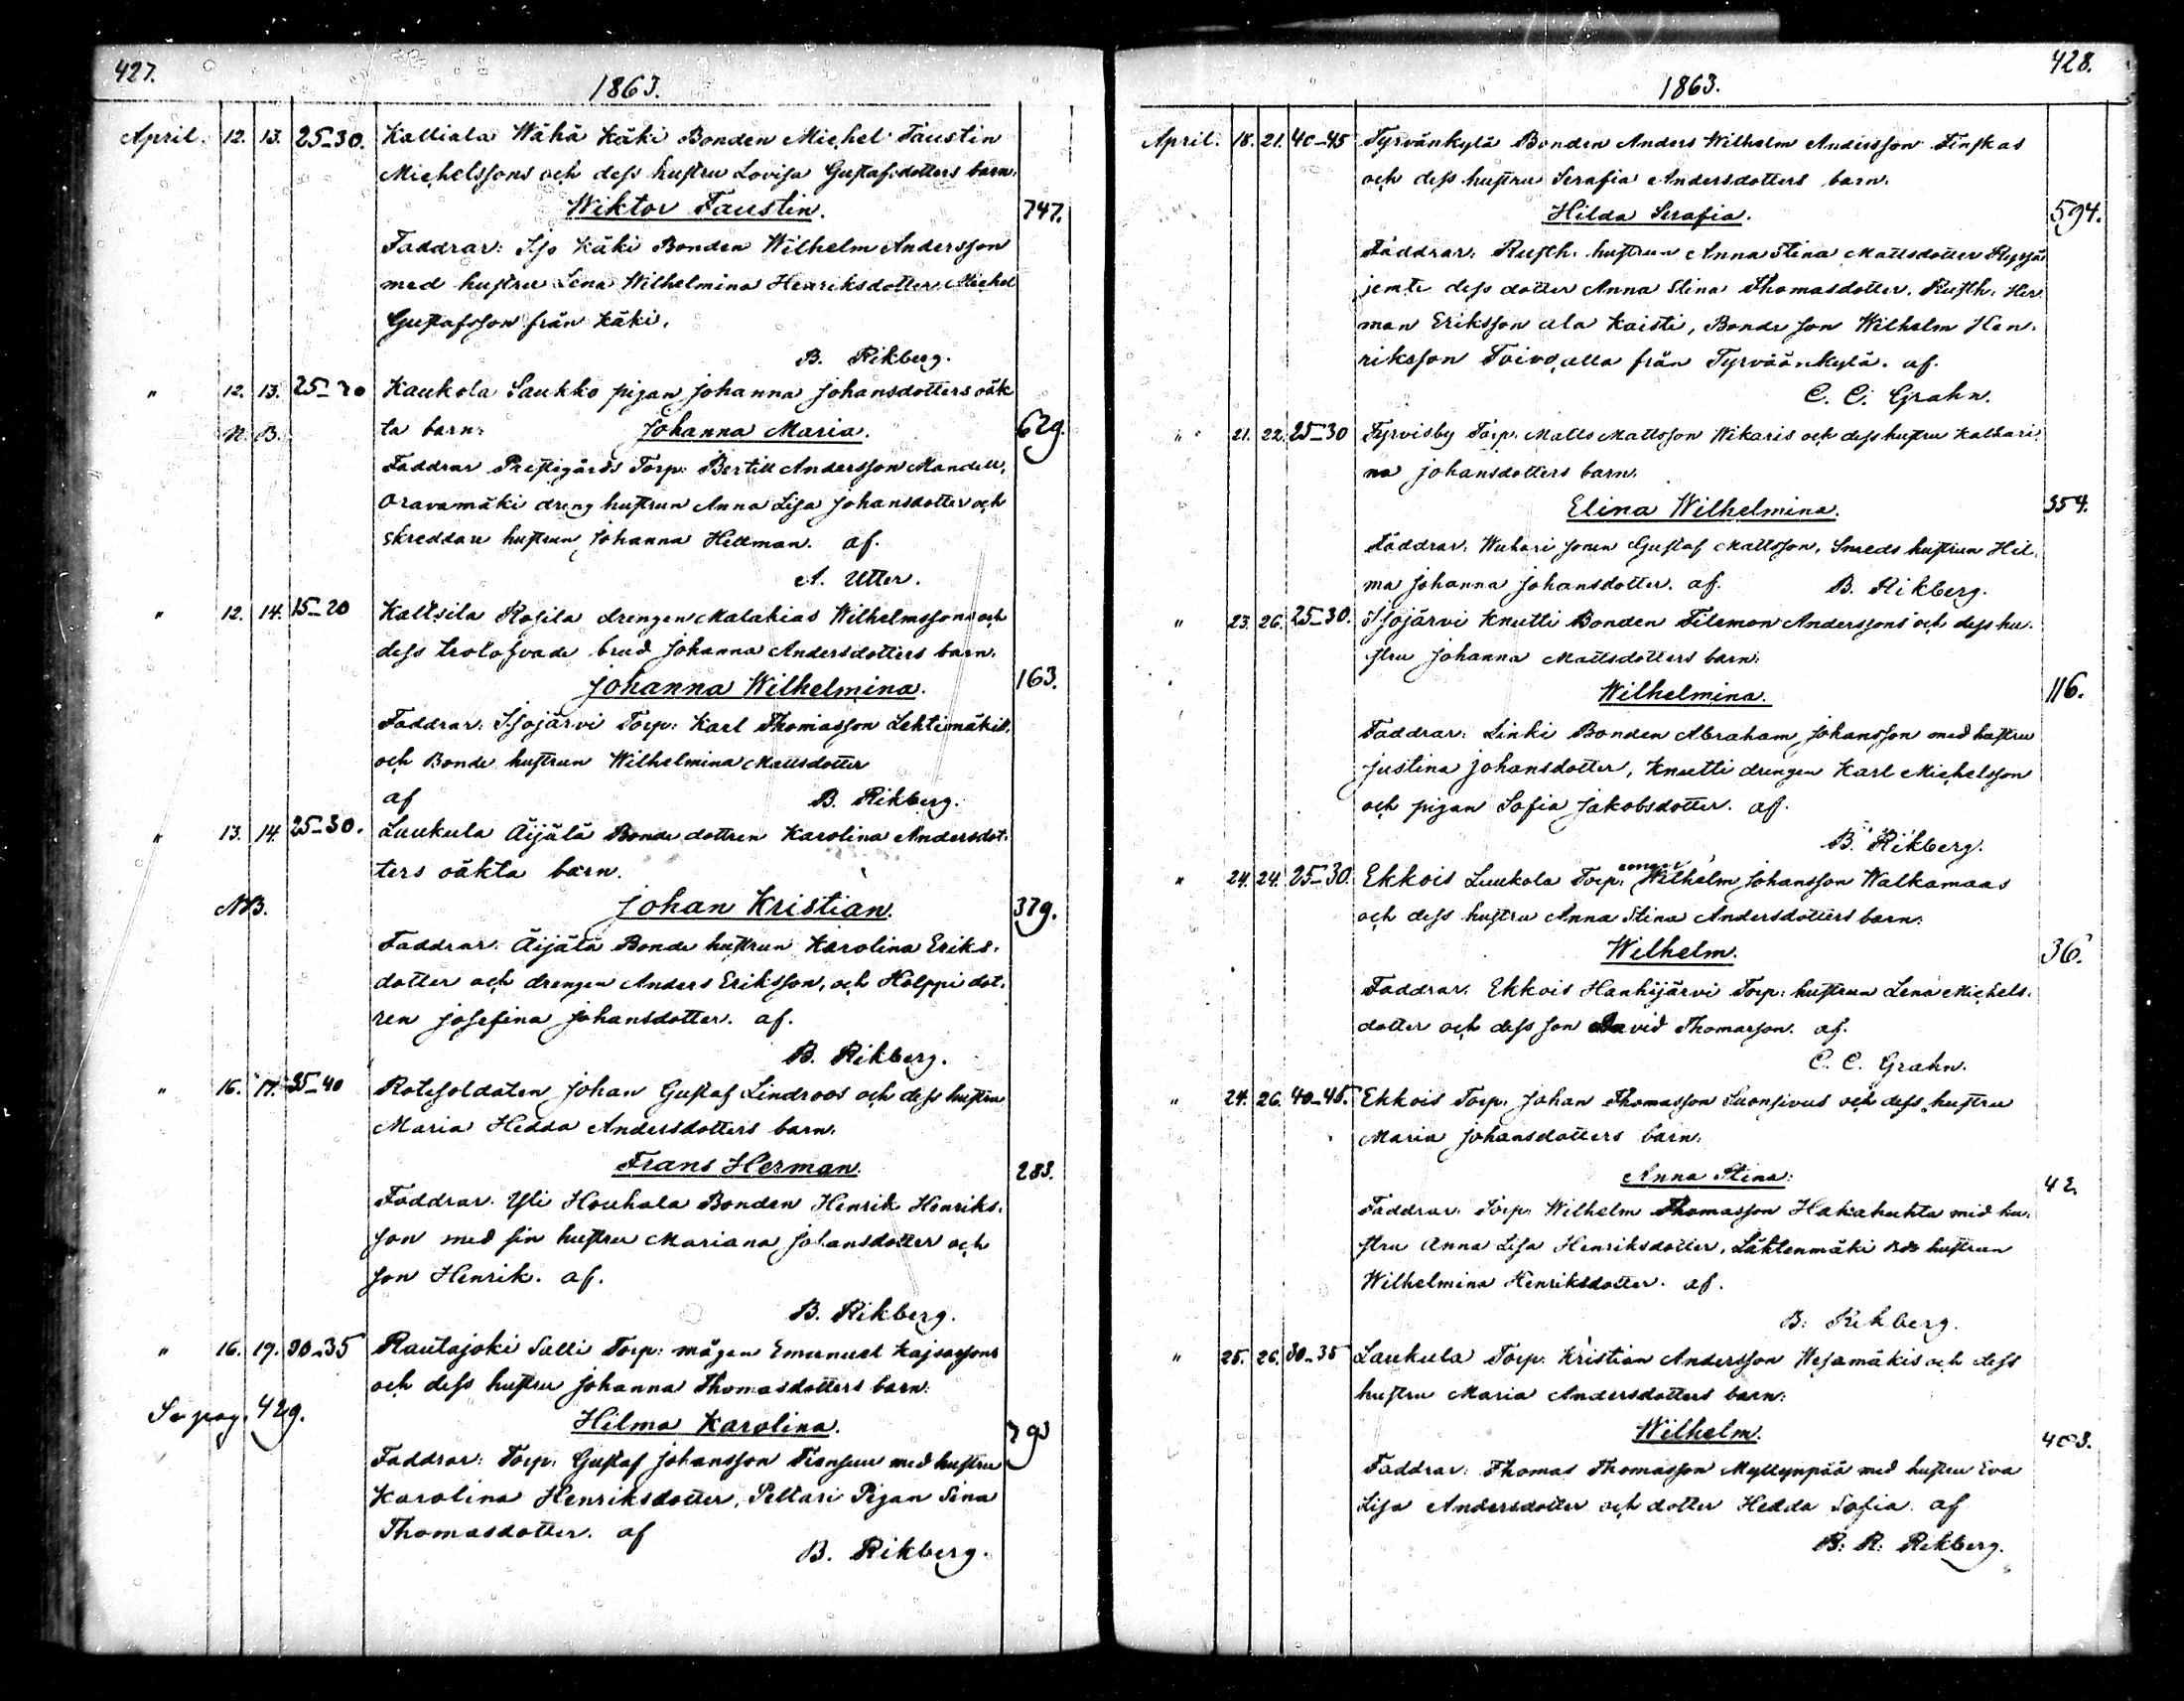 427.
1863.
April. 12. 13. 25-30. Kalliala Wähä Käki Bonden Michel Faustin
Michelssons och dess hustru Lovisa Gustafsdotters barn.
Wiktor Faustin. 747.
Faddrar: Iso Käki Bonden Wilhelm Andersson
med hustru Lena Wilhelmina Henriksdotter, Michel
Gustafsson från Käki.
B. Rikberg.
" 12. 13. 25-30 Kaukola Saukko pigan Johanna Johansdotters oäk
N. B. ta barn: Johanna Maria. 629.
Faddrar Prestigårds Torp: Bertill Andersson Mandell,
Oravamäki dreng hustrun Anna Lisa Johansdotter och
skreddare hustrun Johanna Hellman. af.
A. Utter.
" 12. 14. 15-20 Kaltsila Rosila drengen Malakias Wilhelmssons och
dess trolofvade brud Johanna Andersdotters barn.
Johanna Wilhelmina. 163.
Faddrar: Isojärvi Torp: Karl Thomasson Lehtimäki
och Bonde hustrun Wilhelmina Mattsdotter
af B. Rikberg.
" 13. 14. 25-30. Laukula Äijälä Bonde dottren Karolina Andersdot-
ters oäkta barn.
NB. Johan Kristian. 379.
Faddrar: Äijälä Bonde hustrun Karolina Eriks-
dotter och drengen Anders Eriksson, och Holppi dot-
ren Josefina Johansdotter. af.
B. Rikberg.
" 16. 17. 35-40 Rotesoldaten Johan Gustaf Lindroos och dess hustru
Maria Hedda Andersdotters barn.
Frans Herman. 283.
Faddrar. Yli Houhala Bonden Henrik Henriks-
son med sin hustru Mariana Johansdotter och
son Henrik. af.
B. Rikberg.
" 16. 19. 30-35 Rautajoki Salli Torp: mågen Emanuel Kajsassons
och dess hustru Johanna Thomasdotters barn:
Se pag. 429. Hilma Karolina. 793
Faddrar: Torp: Gustaf Johansson med hustru
Karolina Henriksdotter, Peltari Pigan Lena
Thomasdotter. af
B. Rikberg.
428.
1863.
April. 18. 21. 40-45 Tyrvänkylä Bonden Anders Wilhelm Andersson Finskas
och dess hustru Serafia Andersdotters barn.
Hilda Serafia. 594.
Faddrar: Rusth. hustrun Anna Stina Mattsdotter
jemte dess dotter Anna Stina Thomasdotter. Rusth. Her
man Eriksson ala Kaisti, Bonde son Wilhelm Hen-
riksson Toivo,alla från Tyrväänkylä. af.
C. C. Grahn.
" 21. 22. 25-30 Tyrvisby Torp. Matts Mattsson Wikaris och dess hustru Kathari-
na Johansdotters barn.
Elina Wilhelmina. 354.
Faddrar. sonen Gustaf Mattsson, Smeds hustrun Hil-
ma Johanna Johansdotter. af. B. Rikberg.
" 23. 26. 25-30. Isojärvi Knutti Bonden Filemon Anderssons och dess hu-
stru Johanna Mattsdotters barn:
Wilhelmina. 116.
Faddrar: Linki Bonden Abraham Johansson med hustru
Justina Johansdotter, Knutti drengen Karl Michelsson
och pigan Sofia Jakobsdotter. af.
B. Rikberg.
" 24. 24. 25-30 Ekkois Luukola Torp: Wilhelm Johansson Walkamaas
och dess hustru Anna Stina Andersdotters barn:
Wilhelm. 36.
Faddrar. Ekkois Hanhijärvi Torp: hustrun Lena Michels-
dotter och dess son David Thomasson. af.
C. C. Grahn.
" 24. 26. 40-45. Ekkois Torp. Johan Thomasson Suonsivus och dess hustru
Maria Johansdotters barn.
Anna Stina: 42.
Faddrar. Torp. Wilhelm Thomasson Hakahuhta med hu-
stru Anna Lisa Henriksdotter, Lähtenmäki hustrun
Wilhelmina Henriksdotter. af.
B. Rikberg.
" 25. 26. 30-35 Laukula Torp. Kristian Andersson Wesamäkis och dess
hustru Maria Andersdotters barn:
Wilhelm. 403.
Faddrar: Thomas Thomasson Myllynpää med hustru Eva
Lisa Andersdotter och dotter Hedda Sofia. af
B. R. Rikberg.